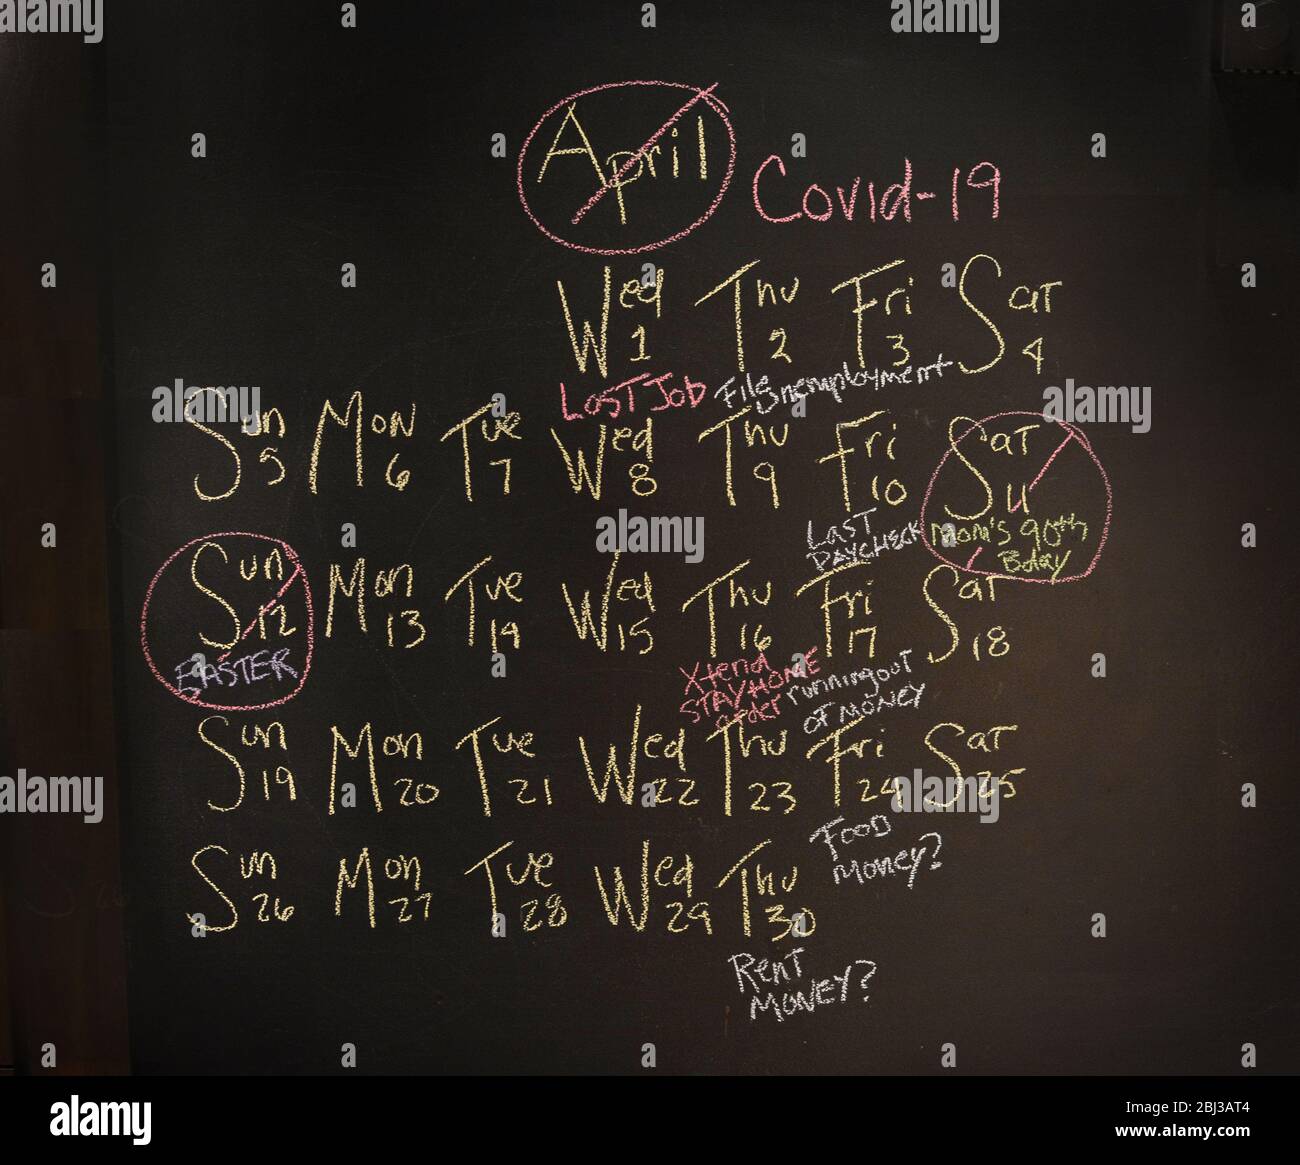 April
Covid-19
Wed Thu Fri Sat
1 2 3 4
LOST JOB File Unemployment
Sun Mon Tue Wed Thu Fri Sat
5 6 7 8 9 10 11
LAST PAYCHECK
Mom's 90th Bday
Sun Mon Tue Wed Thu Fri Sat
12 13 14 15 16 17 18
EASTER
Xtend STAY HOME order
running out OF MONEY
Sun Mon Tue Wed Thu Fri Sat
19 20 21 22 23 24 25
FOOD Money?
Sun Mon Tue Wed Thu
26 27 28 29 30
Rent MONEY?
alamy
alamy
Image ID: 2BJ3AT4
www.alamy.com